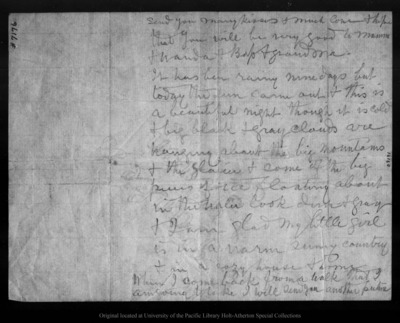 send you many kisses & much love & hope
that you will be very good to mama
& Wanda & Grandma.
It has been rainy nine days but
today the sun came out & this is
a beautiful night though it is cold
& big black & gray clouds are
hanging about the big mountains
& the glacier & some of the big
pieces of ice floating about
in the water look dim & gray
& I am glad my little girl
is in a warm sunny country
& in a cozy house & home
When I come back from a walk that I
am going to take I will send you another picture
Original located at University of the Pacific Library Holt-Atherton Special Collections